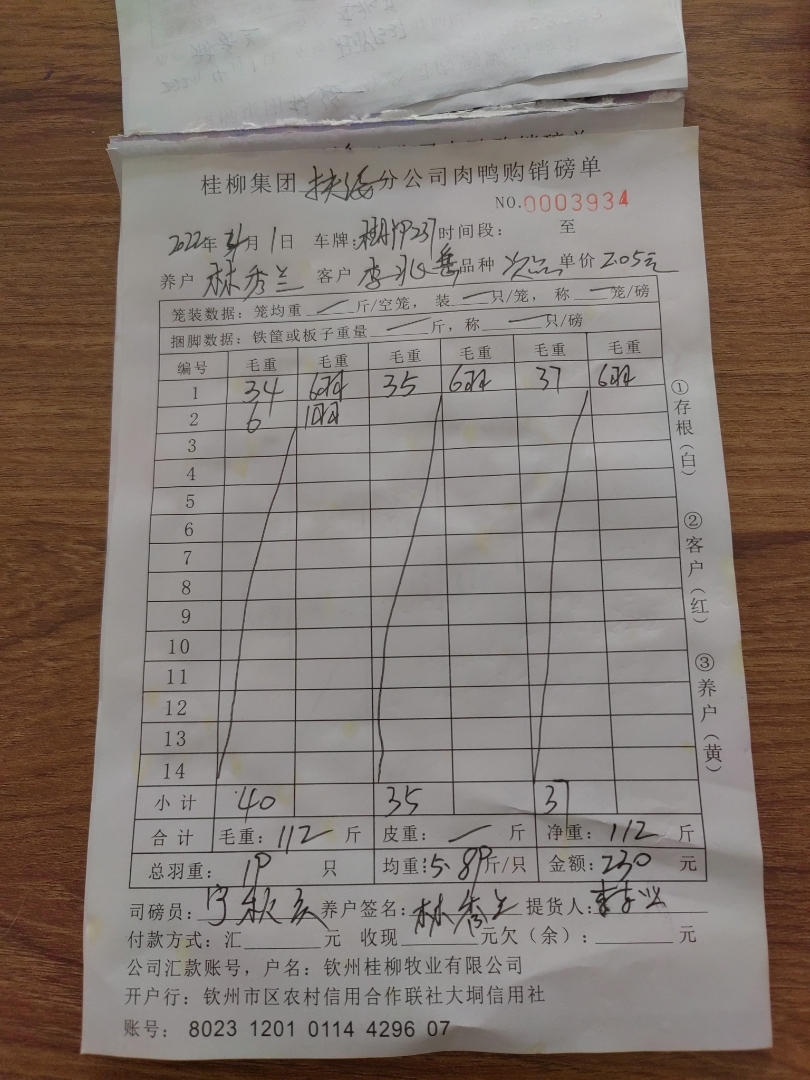 桂柳集团 扶绥 分公司肉鸭购销磅单
NO.0003934
2022年 月1日 车牌: 237 时间段: 至
养户 林秀兰 客户 李兆 品种 次品 单价 2.05元
笼装数据: 笼均重 斤/空笼, 装 只/笼, 称 笼/磅
捆脚数据: 铁筐或板子重量 斤, 称 只/磅
编号 毛重 毛重 毛重 毛重 毛重 毛重
1 34 6羽 35 6羽 37 6羽
2 6 1羽
3
4
5
6
7
8
9
10
11
12
13
14
小计 40 35 37
合计 毛重: 112 斤 皮重: 斤 净重: 112 斤
总羽重: 19 只 均重: 5.89斤/只 金额: 230 元
司磅员: 宁 养户签名: 林秀兰 提货人: 李
付款方式: 汇 元 收现 元欠(余): 元
公司汇款账号, 户名: 钦州桂柳牧业有限公司
开户行: 钦州市区农村信用合作联社大垌信用社
账号: 8023 1201 0114 4296 07
①存根(白)
②客户(红)
③养户(黄)